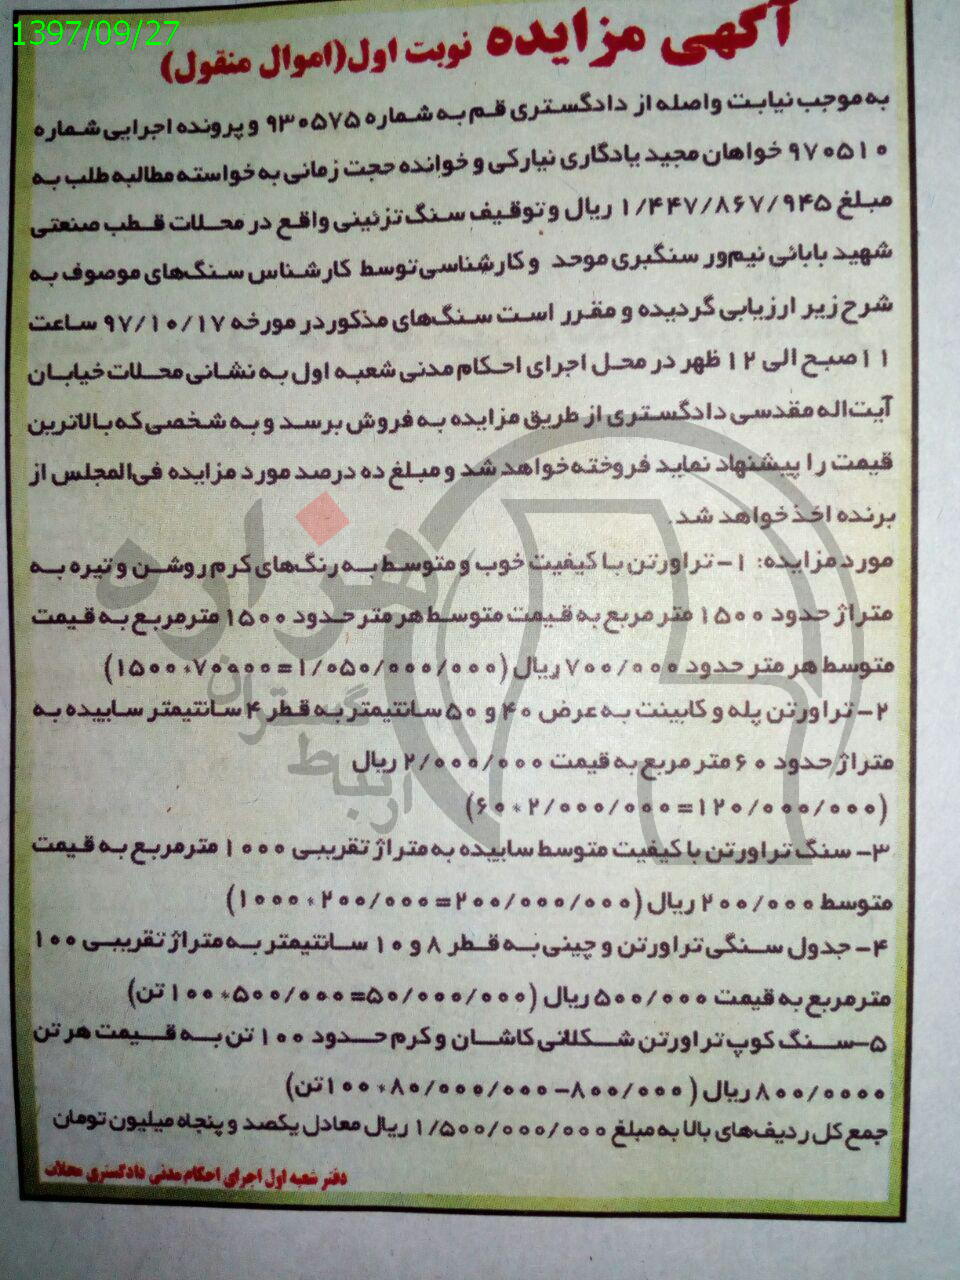 1397/09/27
آگهی مزایده نوبت اول(اموال منقول)
به موجب نیابت واصله از دادگستری قم به شماره ۹۳۰۵۷۵ و پرونده اجرایی شماره
۹۷۰۵۱۰ خواهان مجید یادگاری نیارکی و خوانده حجت زمانی به خواسته مطالبه طلب به
مبلغ ۱/۴۴۷/۸۶۷/۹۴۵ ریال و توقیف سنگ تزئینی واقع در محلات قطب صنعتی
شهید بابائی نیم‌ور سنگبری موحد و کارشناسی توسط کارشناس سنگ‌های موصوف به
شرح زیر ارزیابی گردیده و مقرر است سنگ‌های مذکور در مورخه ۹۷/۱۰/۱۷ ساعت
۱۱صبح الی ۱۲ ظهر در محل اجرای احکام مدنی شعبه اول به نشانی محلات خیابان
آیت‌اله مقدسی دادگستری از طریق مزایده به فروش برسد و به شخصی که بالاترین
قیمت را پیشنهاد نماید فروخته خواهد شد و مبلغ ده درصد مورد مزایده فی‌المجلس از
برنده اخذ خواهد شد.
مورد مزایده: ۱- تراورتن با کیفیت خوب و متوسط به رنگ‌های کرم روشن و تیره به
متراژ حدود ۱۵۰۰ متر مربع به قیمت متوسط هر متر حدود ۱۵۰۰ مترمربع به قیمت
متوسط هر متر حدود ۷۰۰/۰۰۰ ریال (۱/۰۵۰/۰۰۰/۰۰۰=۷۰۰۰۰*۱۵۰۰)
۲- تراورتن پله و کابینت به عرض ۴۰ و ۵۰ سانتیمتر به قطر ۴ سانتیمتر ساییده به
متراژ حدود ۶۰ متر مربع به قیمت ۲/۰۰۰/۰۰۰ ریال
(۱۲۰/۰۰۰/۰۰۰=۲/۰۰۰/۰۰۰*۶۰)
۳- سنگ تراورتن با کیفیت متوسط ساییده به متراژ تقریبی ۱۰۰۰ مترمربع به قیمت
متوسط ۲۰۰/۰۰۰ ریال (۲۰۰/۰۰۰/۰۰۰=۲۰۰/۰۰۰*۱۰۰۰)
۴- جدول سنگی تراورتن و چینی به قطر ۸ و ۱۰ سانتیمتر به متراژ تقریبی ۱۰۰
مترمربع به قیمت ۵۰۰/۰۰۰ ریال (۵۰/۰۰۰/۰۰۰=۵۰۰/۰۰۰*۱۰۰ تن)
۵-سنگ کوپ تراورتن شکلاتی کاشان و کرم حدود ۱۰۰ تن به قیمت هر تن
۸۰۰/۰۰۰۰ ریال (۸۰۰/۰۰۰-۸۰/۰۰۰/۰۰۰*۱۰۰تن)
جمع کل ردیف‌های بالا به مبلغ ۱/۵۰۰/۰۰۰/۰۰۰ ریال معادل یکصد و پنجاه میلیون تومان
دفتر شعبه اول اجرای احکام مدنی دادگستری محلات
هزاره
ارتباط گستران